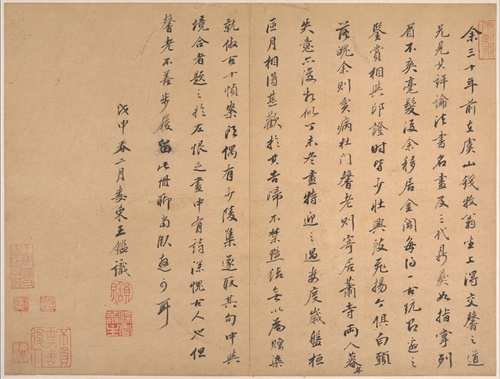 余三十年前在虞山錢牧翁坐上得交馨之道
兄見其評論法書名畫及三代鼎彝如指掌列
眉不爽毫髮後余移居金閶每得一古玩召之
鑒賞相與印證時皆少壯興致飛揚今俱白頭
落魄余則貧病杜門馨老則寄居蕭寺兩人暮年
失意亦復相似丁未冬盡特迎之過婁度歲盤桓
匝月相得甚歡於其告歸不禁黯結無以為贈集
就倣古十幀案頭偶有少陵集遂取其句中與
境合者題之於左恨之畫中有詩深愧古人也但
馨老不善步履留此冊聊當臥遊可耳
戊申春二月婁東王鑑識